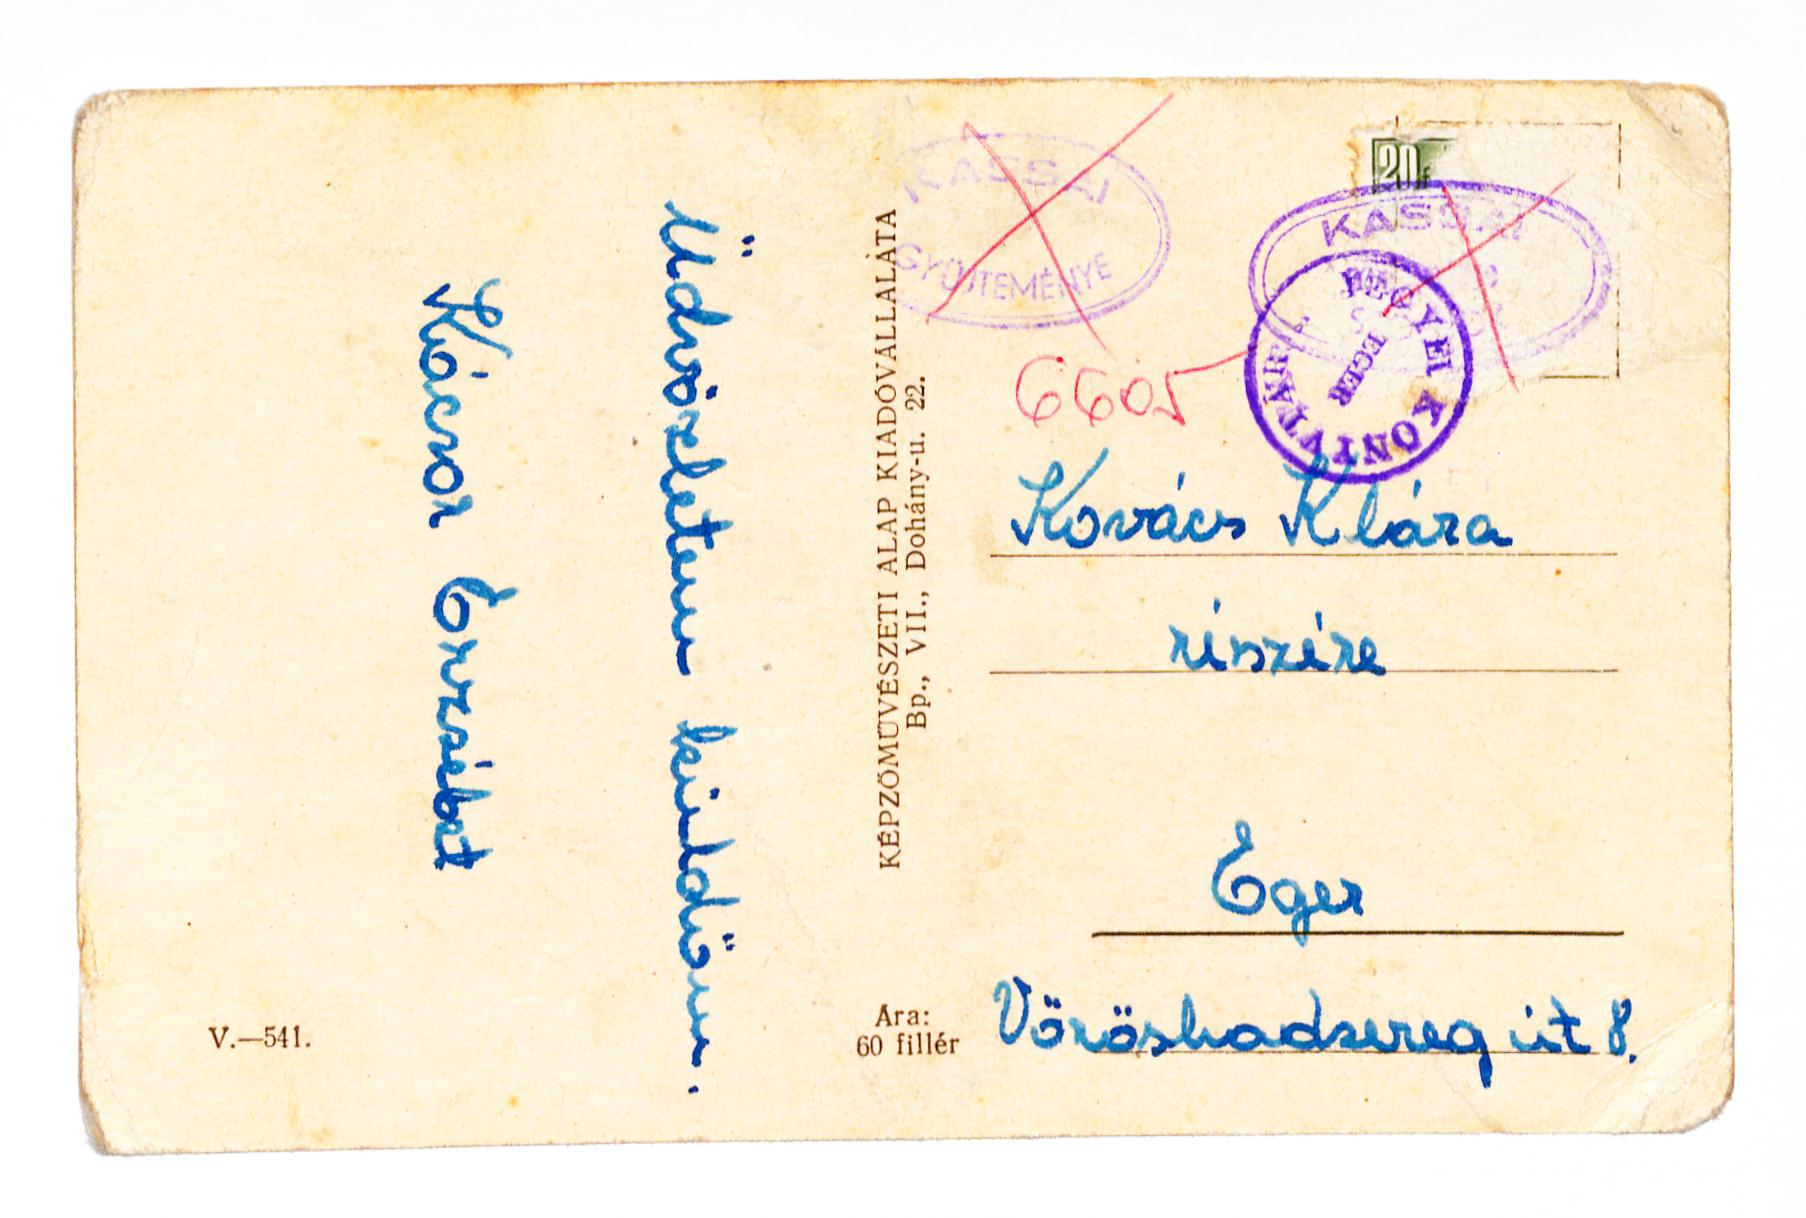 Üdvözletem küldöm.
Kácsor Erzsébet
V.—541.
KÉPZŐMŰVÉSZETI ALAP KIADÓVÁLLALATA
Bp., VII., Dohány-u. 22.
Ára:
60 fillér
KASSAI
GYŰJTEMÉNYE
20
KASSAI
MEGYEI KÖNYVTÁR
EGER
6605
Kovács Klára
részére
Eger
Vöröshadsereg út 8.